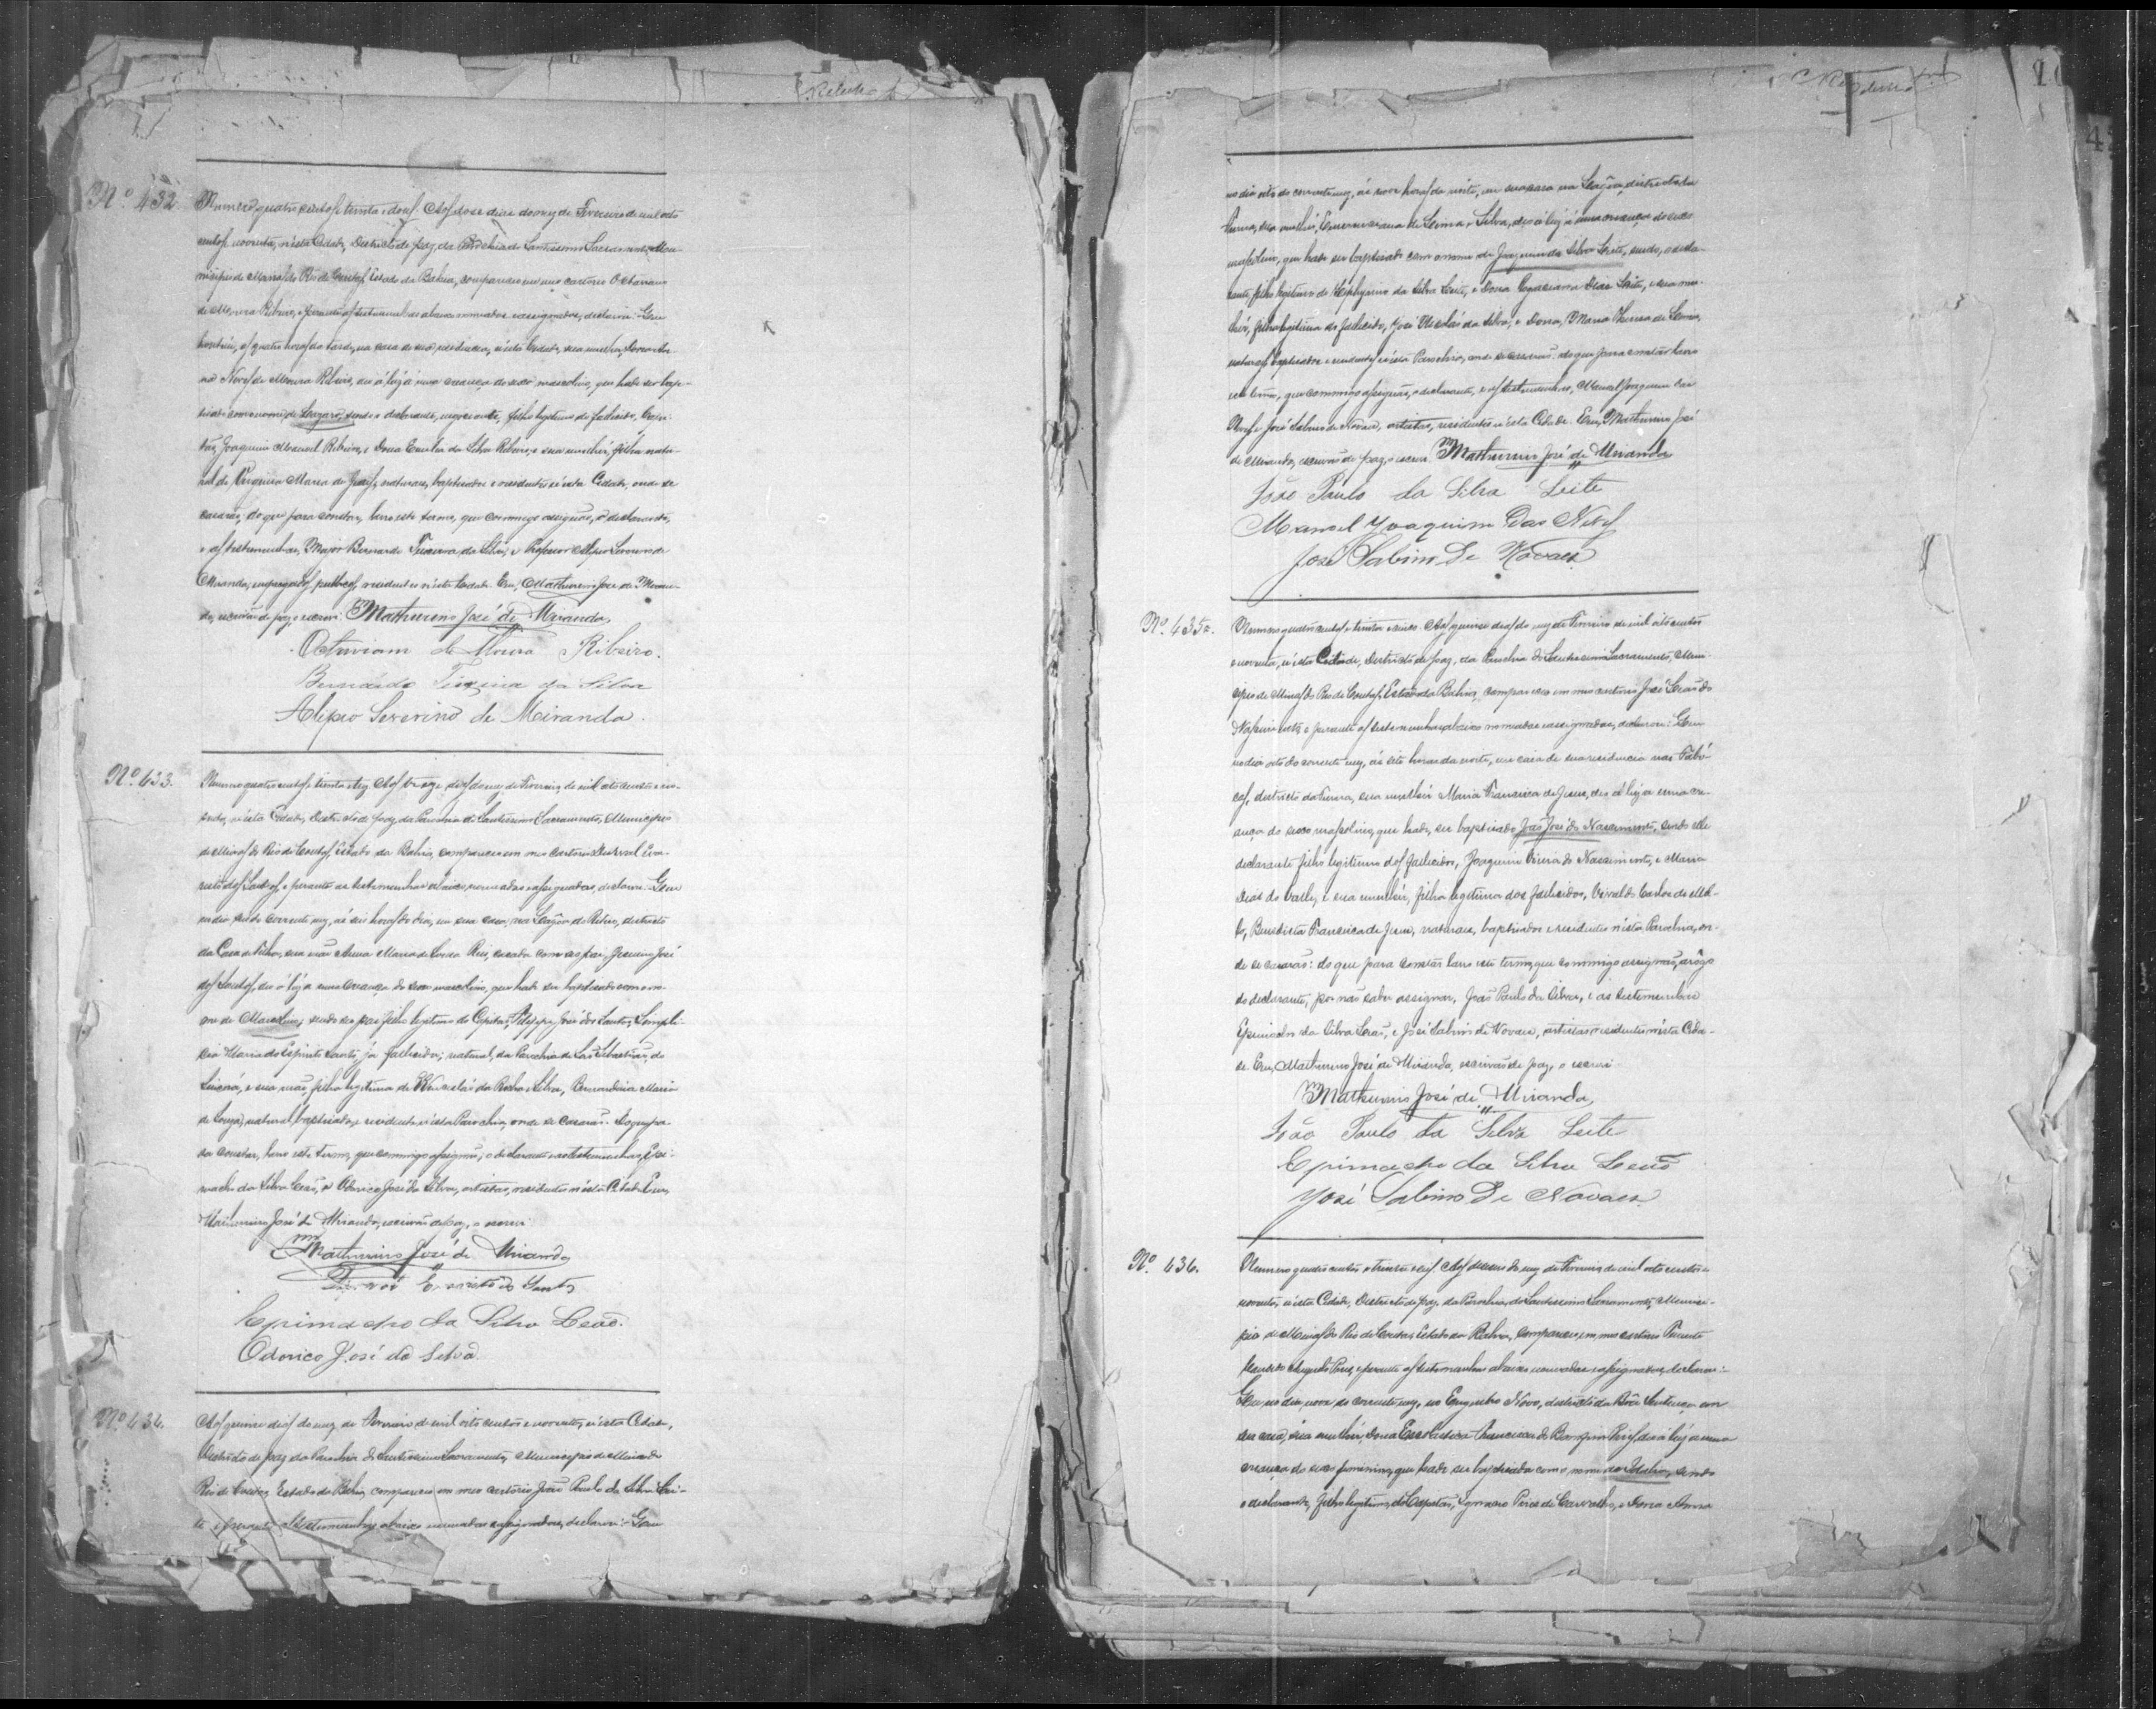 Nº 432.
Numero quatro centos e trinta e dous. Aos dose dias do mez de Fevereiro de mil oito
centos e noventa, n'esta Cidade, Districto de paz, da Parochia do Santissimo Sacramento, Mu-
nicipio de Minas do Rio de Contas, Estado da Bahia, compareceu em meu cartorio Octaviano
de Moura Ribeiro, e perante as testemunhas abaixo nomeadas e assignadas, declarou: Que
hontem, as quatro horas da tarde, na casa de sua residencia, n'esta Cidade, sua mulher,
Neves de Moura Ribeiro, deu á luz a uma creança do sexo masculino, que hade ser bap-
tisado com o nome de Lazaro, sendo o declarante, filho legitimo do fallecido, Capi-
tão, Joaquim Manoel Ribeiro, e Dona da Silva Ribeiro, e sua mulher, filha natu-
ral de Maria de Jesus, naturaes, baptisados e residentes n'esta Cidade, onde se
casarão; do que para constar, lavro este termo, que commigo assignão, o declarante,
e as testemunhas, Major Bernardo Teixeira da Silva, e Professor Alipio Severino de
Miranda, empregados publicos, residentes n'esta Cidade. Eu, Mathurino José de Miran-
da, escrivão de paz, o escrevi. Mathurino José de Miranda,
Octaviano de Moura Ribeiro.
Bernardo Teixeira da Silva
Alipio Severino de Miranda.
Nº 433.
Numero quatro centos e trinta e trez. Aos treze dias do mez de Fevereiro, de mil oito centos e no-
venta, n'esta Cidade, Districto de paz, da Parochia do Santissimo Sacramento, Municipio
de Minas do Rio de Contas, Estado da Bahia, compareceu em meu Cartorio Durval Eva-
risto dos Santos, e perante as testemunhas abaixo nomeadas e assignadas, declarou: Que
no dia seis do corrente mez, ás seis horas do dia, em sua casa, na Lagôa de Ribeiro, districto
da Casa de Telha, sua mãe Anna Maria de Souza Reis, casada com seo pai, José
dos Santos, deu á luz a uma creança do sexo masculino, que hade ser baptisado com o no-
me de Marcolino; sendo seo pae filho legitimo do Capitão, Felippe José dos Santos, e Simpli-
cia Maria do Espirito Santo, já fallecidos; natural, da Parochia de São Sebastião, do
e sua mãe, filha legitima de Wenceslão da Rocha e Silva, e Maria
de Souza, natural, baptisada, e residente n'esta Parochia, onde se casarão. Do que pa-
ra constar, lavro este termo, que commigo assignão, o declarante e as testemunhas, Epi-
macho da Silva Leão, e Odorico José da Silva, artistas, residentes n'esta Cidade. Eu,
Mathurino José de Miranda, escrivão de paz, o escrevi.
Mathurino José de Miranda
Durval Evaristo dos Santos
Epimacho da Silva Leão.
Odorico José da Silva.
Nº 434.
Aos quinse dias do mez de Fevereiro de mil oito centos e noventa, n'esta Cidade,
Districto de paz da Parochia do Santissimo Sacramento, Municipio de Minas do
Rio de Contas, Estado da Bahia, compareceu em meu cartorio João Paulo da Silva Lei-
te e perante as testemunhas abaixo nomeadas e assignadas, declarou: Que
no dia oito do corrente mez, ás nove horas da noite, em sua casa na Lagôa, districto da
Furna, sua mulher, de Lima e Silva, deu á luz a uma creança do sexo
masculino, que hade ser baptisado com o nome de Joaquim da Silva Leite, sendo, o decla-
rante, filho legitimo de Zephyrino da Silva Leite, e Dona Dias Leite, e sua mu-
lher, filha legitima do fallecido, José Nicoláo da Silva, e Dona, Maria Thereza de Lima,
naturaes, baptisados e residentes n'esta Parochia, onde se casarão: do que para constar lavro
este termo, que commigo assignão, o declarante, e as testemunhas, Manoel Joaquim das
Neves e José Sabino de Novaes, artistas, residentes n'esta Cidade. Eu, Mathurino José
de Miranda, escrivão de paz, o escrevi. Mathurino José de Miranda
João Paulo da Silva Leite
Manoel Joaquim Das Neves
José Sabino De Novaes
Nº 435.
Numero quatro centos e trinta e cinco. Aos quinse dias do mez de Fevereiro de mil oito centos
e noventa, n'esta Cidade, Districto de paz, da Parochia do Santissimo Sacramento, Muni-
cipio de Minas do Rio de Contas, Estado da Bahia, compareceu em meu cartorio José Leão do
Nascimento, e perante as testemunhas abaixo nomeadas e assignadas, declarou: Que
no dia oito do corrente mez, ás sete horas da noite, em casa de sua residencia nas
districto da Furna, sua mulher Maria Francisca de Jesus, deu á luz a uma cre-
ança do sexo masculino, que hade, ser baptisado João José do Nascimento, sendo elle
declarante filho legitimo dos fallecidos, Joaquim Vieira do Nascimento, e Maria
Dias do Valle, e sua mulher, filha legitima dos fallecidos, Carlos de Mel-
lo, Benedicta Francisca de Jesus, naturaes, baptisados e residentes n'esta Parochia, on-
de se casarão: do que para constar lavro este termo, que commigo assignão, a rôgo
do declarante, por não saber assignar, João Paulo da Silva, e as testemunhas
Epimacho da Silva Leão, e José Sabino de Novaes, artistas, residentes n'esta Cida-
de. Eu, Mathurino José de Miranda, escrivão de paz, o escrevi.
Mathurino José de Miranda,
João Paulo da Silva Leite
Epimacho da Silva Leão
José Sabino De Novaes.
Nº 436.
Numero quatro centos e trinta e seis. Aos deseseis do mez de Fevereiro, de mil oito centos e
noventa, n'esta Cidade, Districto de paz, da Parochia, do Santissimo Sacramento, Munici-
pio de Minas do Rio de Contas, Estado da Bahia, compareceu em meu cartorio Tenente
Augusto Pires, e perante as testemunhas abaixo nomeadas e assignadas, declarou:
Que no dia, nove do corrente mez, no Engenho Novo, districto da Bôa Sentença em
sua casa, sua mulher, Dona Escolastica Francisca de Pires, deu á luz a uma
creança do sexo feminino, que hade ser baptisada com o nome de Idalina, sendo
o declarante, filho legitimo, do Capitão, Ignacio Pires de Carvalho, e Dona Anna